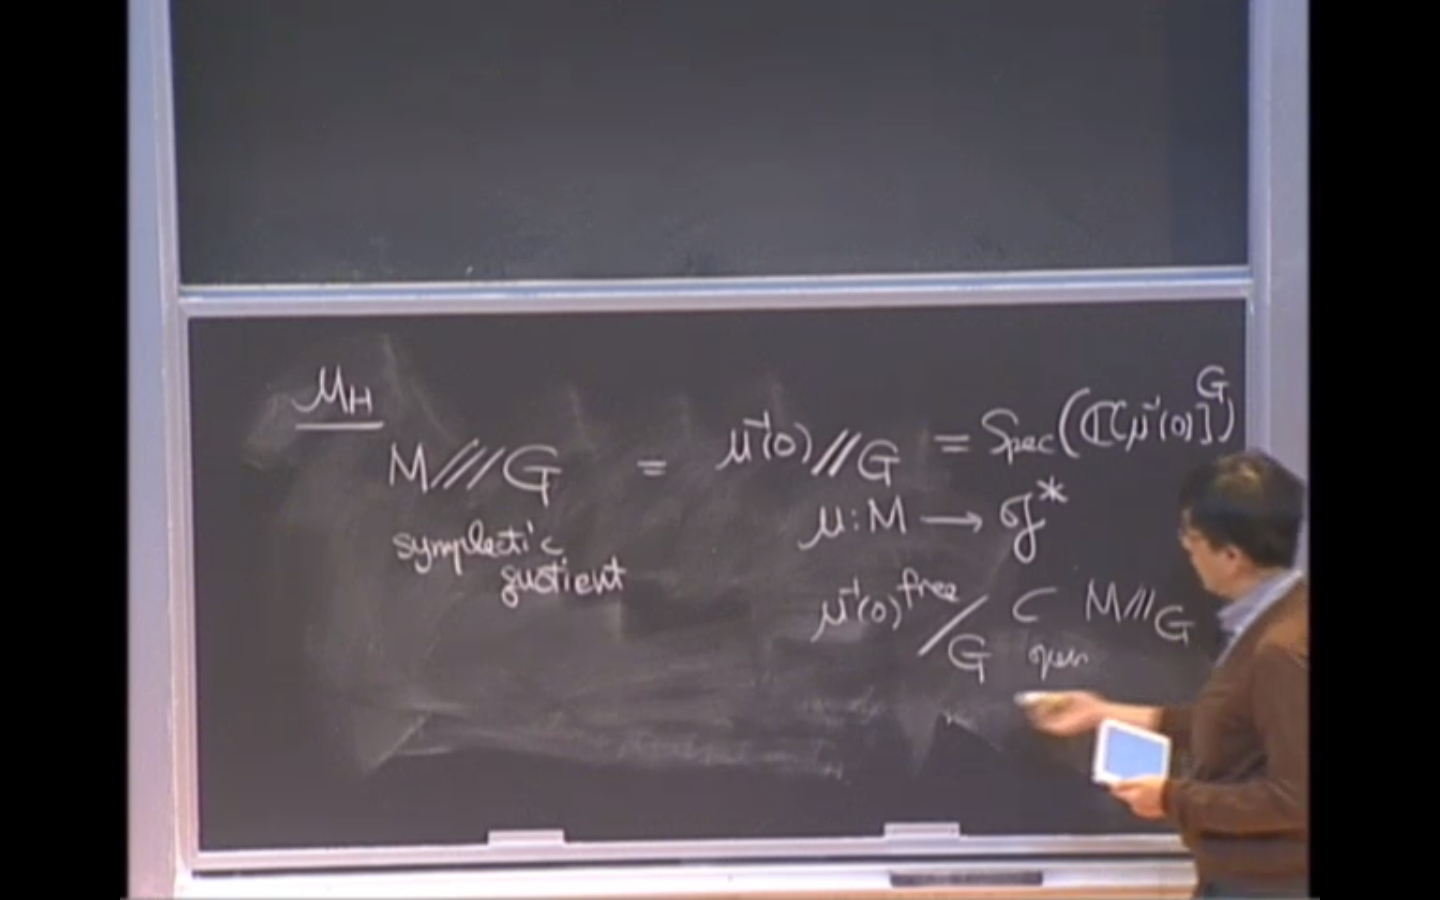 M_H
M///G = μ⁻¹(0)//G = Spec(ℂ[μ⁻¹(0)]^G)
symplectic
quotient
μ: M ⟶ 𝔤*
μ⁻¹(0)^free/G ⊂ M///G
open